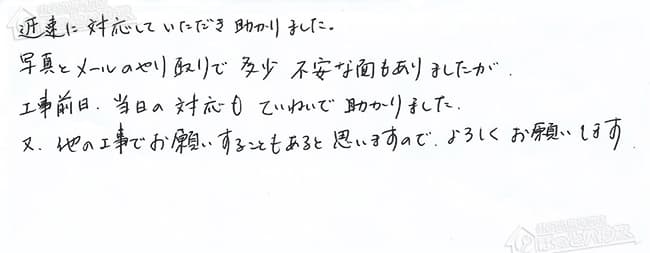 迅速に対応していただき助かりました。
写真とメールのやり取りで多少不安な面もありましたが、
工事前日、当日の対応もていねいで助かりました。
又、他の工事でお願いすることもあると思いますので、よろしくお願いします